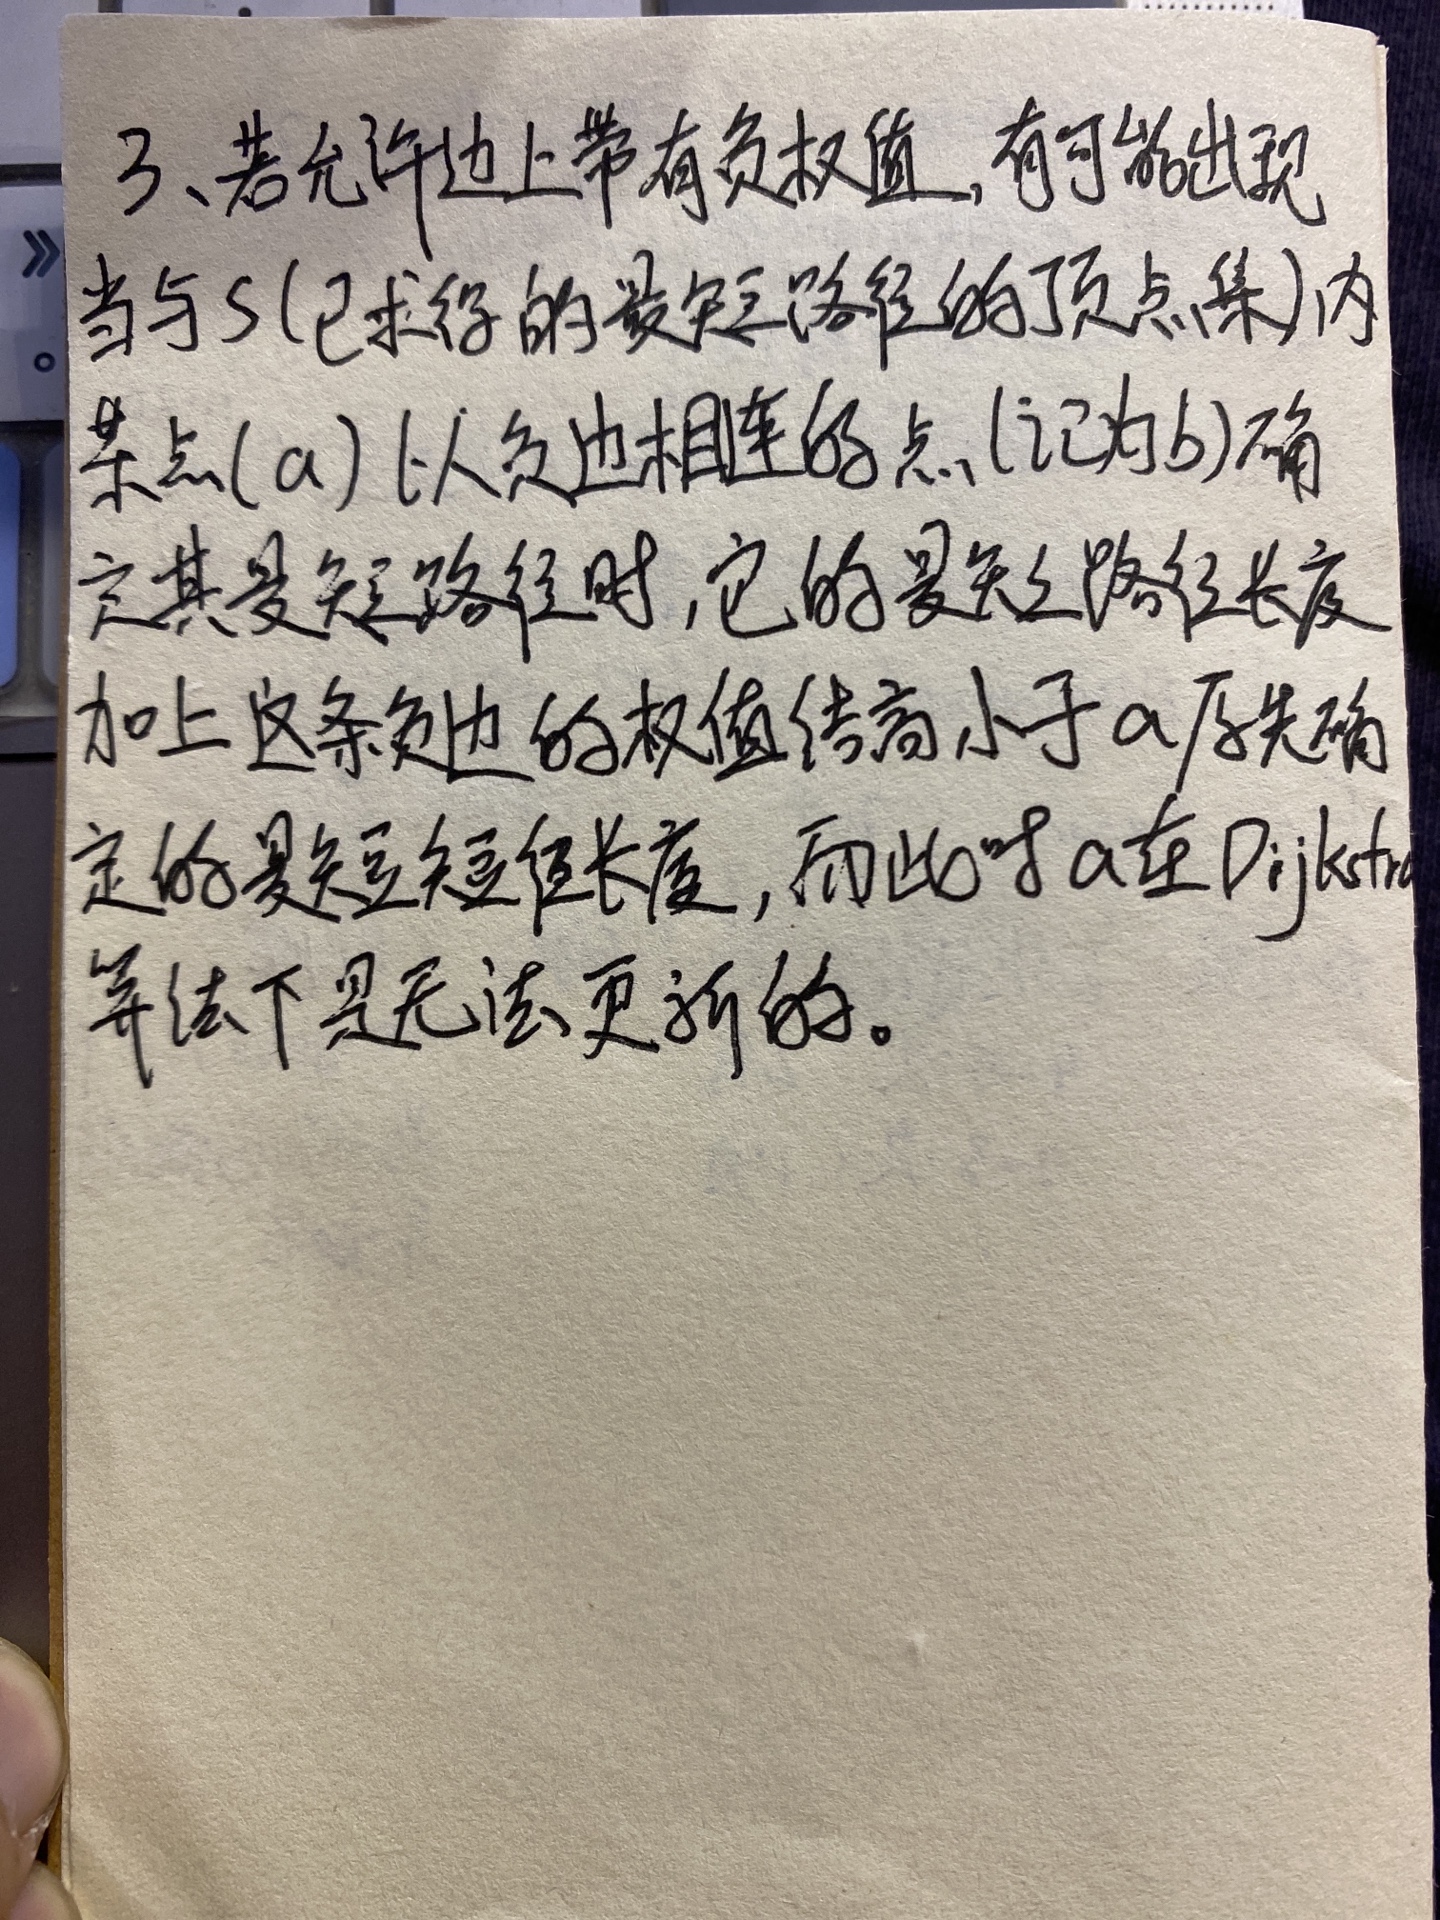 3、若允许边上带有负权值,有可能出现
当与S(已求得的最短路径的顶点集)内
某点(a)以负边相连的点(记为b)确
定其最短路径时,它的最短路径长度
加上这条负边的权值结果小于a原先确
定的最短短径长度,而此时a在Dijkstra
算法下是无法更新的。